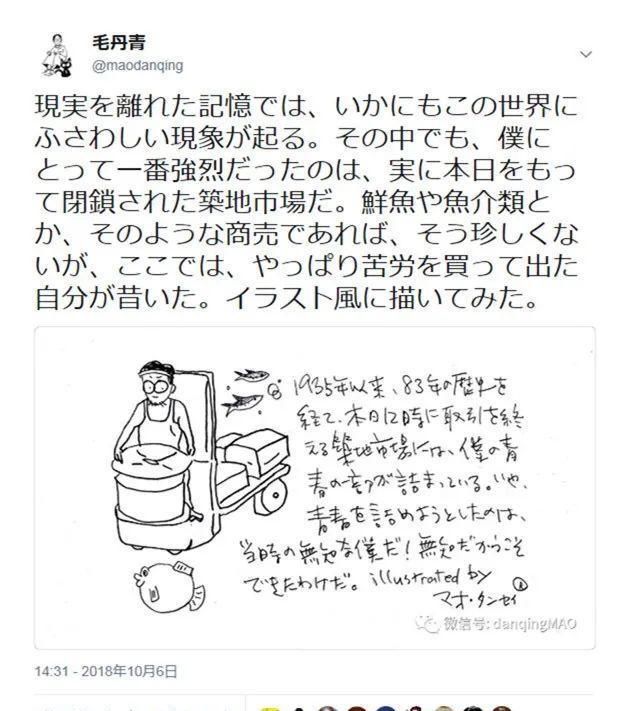 毛丹青
@maodanqing
現実を離れた記憶では、いかにもこの世界に
ふさわしい現象が起る。その中でも、僕に
とって一番強烈だったのは、実に本日をもっ
て閉鎖された築地市場だ。鮮魚や魚介類と
か、そのような商売であれば、そう珍しくな
いが、ここでは、やっぱり苦労を買って出た
自分が昔いた。イラスト風に描いてみた。
1935年以来、83年の歴史を
経て、本日12時に取引を終
える築地市場には、僕の青
春の一部が詰まっている。いや、
青春を詰めようとしたのは、
当時の無知な僕だ！無知だからこそ
できたわけだ。illustrated by
マオ・タンセイ
微信号: danqingMAO
14:31 - 2018年10月6日